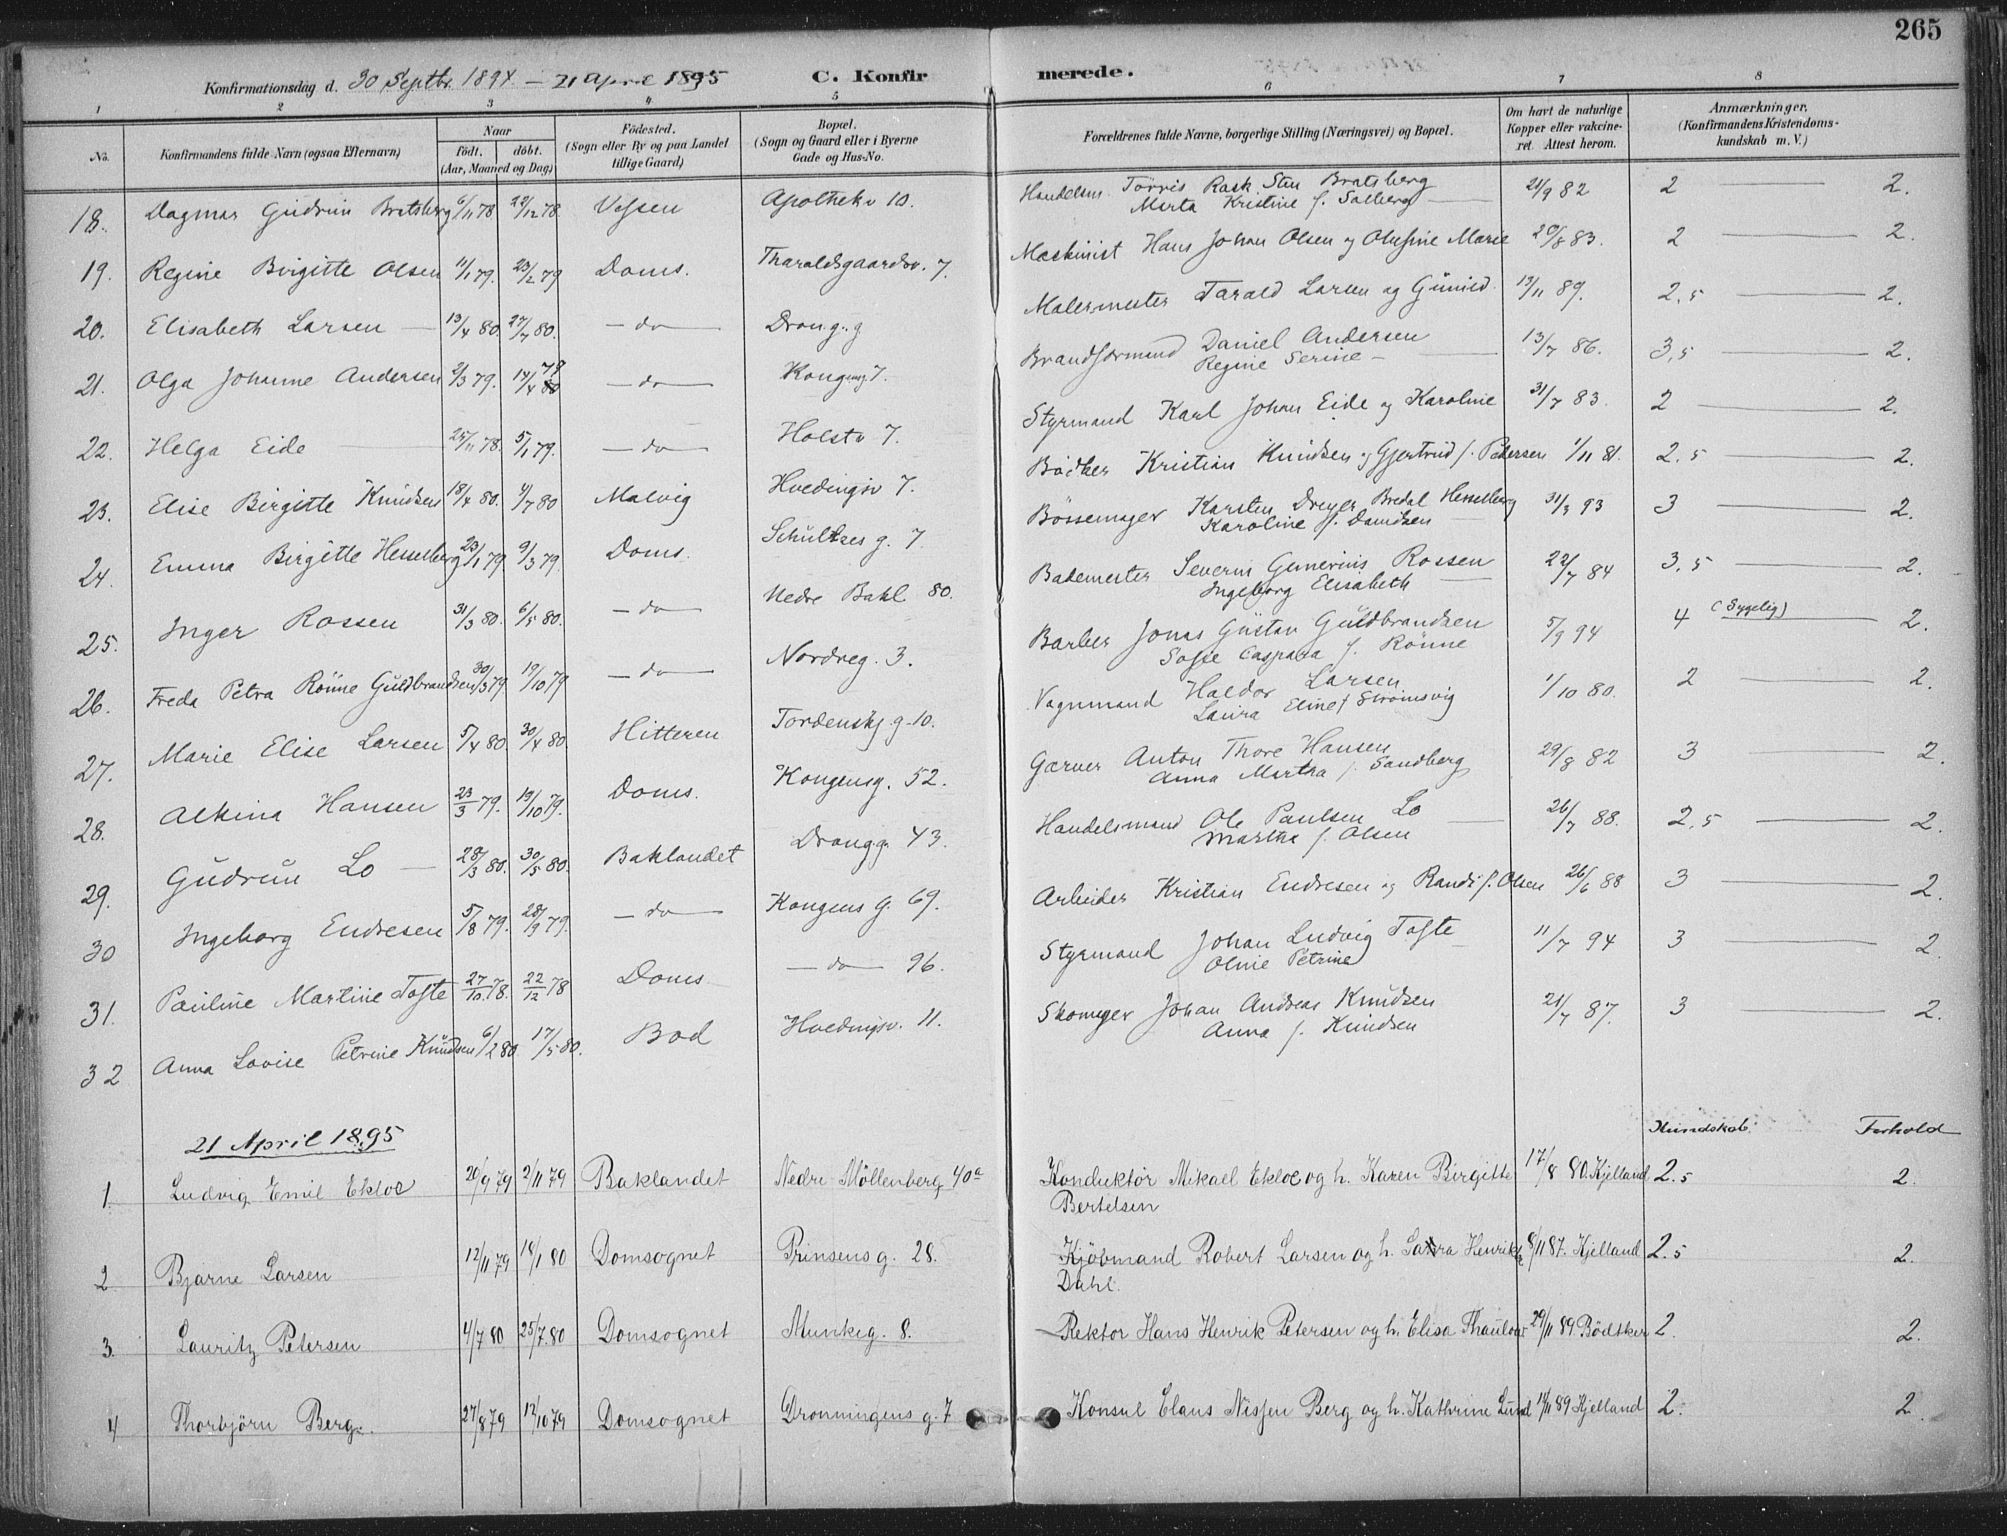 265
Konfirmationsdag d. 30 Septbr. 1894. – 21 April 1895 C. Konfirmerede.
1 2 3 4 5 6 7 8
No. Konfirmandens fulde Navn (ogsaa Efternavn) Naar födt. döbt. (Aar, Maaned og Dag) Födested. (Sogn eller By og paa Landet tillige Gaard) Bopæl. (Sogn og Gaard eller i Byerne Gade og Hus-No. Forældrenes fulde Navne, borgerlige Stilling (Næringsvei) og Bopæl. Om havt de naturlige Kopper eller vakcineret. Attest herom. Anmærkninger. (Konfirmandens Kristendomskundskab m. V.)
18. Dagmar Gudrun Bratsberg 6/11 78 29/12 78. Apothekv 10. Handelsm Törris Rask Sten Bratsberg Marta Kristine f. Solberg 21/9 82 2 2.
19. Regine Birgitte Olsen 11/1 79. 23/2 79 Doms. Tharaldsgaardsv. 7. Maskinist Hans Johan Olsen og Olufine Marie 20/8 83. 2 2.
20. Elisabeth Larsen 13/4 80. 27/7 80. – do – Drong. 9 Malermester Tarald Larsen og Gunild 13/11 89. 2,5 2.
21. Olga Johanne Andersen 2/3 79. 14/4 79 – do – Kongensg 7. Brandformand Daniel Andersen Regine Serine – 13/7 86. 3,5 2.
22. Helga Eide 25/11 78. 5/1 79. – do – Holstv 7. Styrmand Karl Johan Eide og Karoline 31/7 83. 2 2.
23. Elise Birgitte Knudsen 18/4 80. 4/7 80 Malvig Hvedingsv 7. Bödker Kristian Knudsen og Gjertrud f. Petersen 1/11 81. 2.5 2.
24. Emma Birgitte Hesselberg 23/1 79 9/3 79. Doms. Schultzes g. 7 Bössemager Karsten Dreyer Bredal Hesselberg Karoline f. Davidsen 31/3 93 3 2.
25. Inger Rossen 31/3 80. 6/5 80. – do – Nedre Bakl 80. Bademester Severin Rossen Ingeborg Elisabeth 22/7 84 3,5 2.
26. Freda Petra Rönne Guldbrandsen 30/3 79. 19/10 79 – do – Nordreg. 3. Barber Jonas Gustav Guldbrandsen Sofie Caspara f. Rönne 5/9 94 4 (Sygelig) 2.
27. Marie Elise Larsen 5/4 80. 30/4 80. Hitteren Tordenskj. g. 10. Vognmand Haldor Larsen Laura Eline f Strömsvig 1/10 80. 2 2.
28. Alkina Hansen 23/3 79. 19/10 79. Doms. Kongensg. 52. Garver Anton Thore Hansen Anna Martha f. Sandberg 29/8 82 3 2.
29. Gudrun Lo 28/3 80. 30/5 80. Baklandet Drongg. 43. Handelsmand Ole Paulsen Lo Martha f. Olsen 26/7 88. 2,5 2.
30 Ingeborg Endresen 5/8 79. 28/9 79. – do – Kongens g. 69. Arbeider Kristian Endresen og Randi f. Olsen 26/6 88 3 2.
31. Pauline Martine Tofte 27/10 78. 22/12 78 Doms – do – 96. Styrmand Johan Ludvig Tofte Oline Petrine 11/7 94 3 2.
32 Anna Lovise Petrine Knudsen 6/2 80. 17/5 80. Bod Hvedingsv. 11. Skomager Johan Andreas Knudsen Anna f. Knudsen 21/7 87. 3 2.
21 April 1895 Kundskab. Forhold
1. Ludvig Emil Ekloe 20/9 79 2/11 79 Baklandet Nedre Möllenberg 40a Konduktör Mikael Ekloe og h. Karen Birgitte Bertelsen 17/8 80. Kjelland 2.5 2.
2 Bjarne Larsen 12/11 79 18/1 80 Domsognet Prinsens g. 28. Kjöbmand Robert Larsen og h. Laura Henrikke Dahl. 8/11 87. Kjelland 2.5 2.
3. Lauritz Petersen 4/7 80 25/7 80 Domsognet Munkeg. 8. Rektor Hans Henrik Petersen og h. Elisa Thaulow 29/11 89. Bödtker 2. 2.
4 Thorbjörn Berg. 27/8 79 12/10 79 Domsognet Dronningens g. 7 Konsul Claus Nissen Berg og h. Kathrine Lund 14/11 89 Kjelland 2. 2.